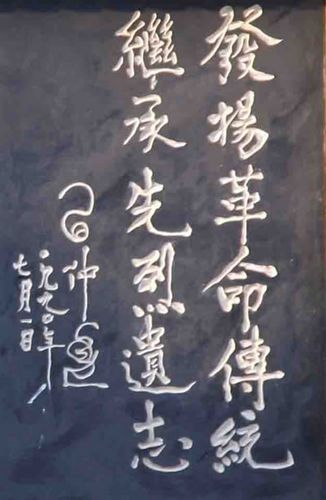 發揚革命傳統
繼承先烈遺志
习仲勋
一九九〇年
七月一日